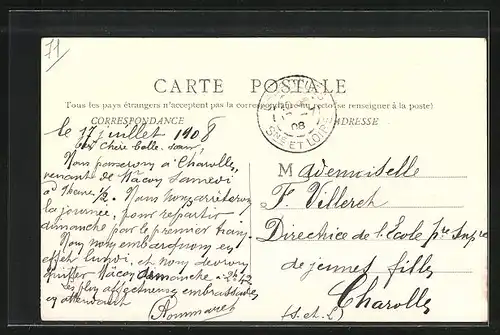 71
CARTE POSTALE
Tous les pays étrangers n'acceptent pas la correspondance au recto (se renseigner à la poste)
CORRESPONDANCE
ADRESSE
08
SNE ET LOIRE
le 17 juillet 1908
Chère Belle-sœur,
Nous passerons à Charolles
venant de Mâcon Samedi
à heure 1/2. Nous nous arrêterons
la journée, pour repartir
dimanche par le premier train.
Nous nous embarquons en
effet lundi et nous devrons
quitter Mâcon dimanche
affectueuses embrassades
en attendant
Mademoiselle
F. Villeret
Directrice de l'Ecole pre Supre
de jeunes filles
Charolles
(S.-et-L.)